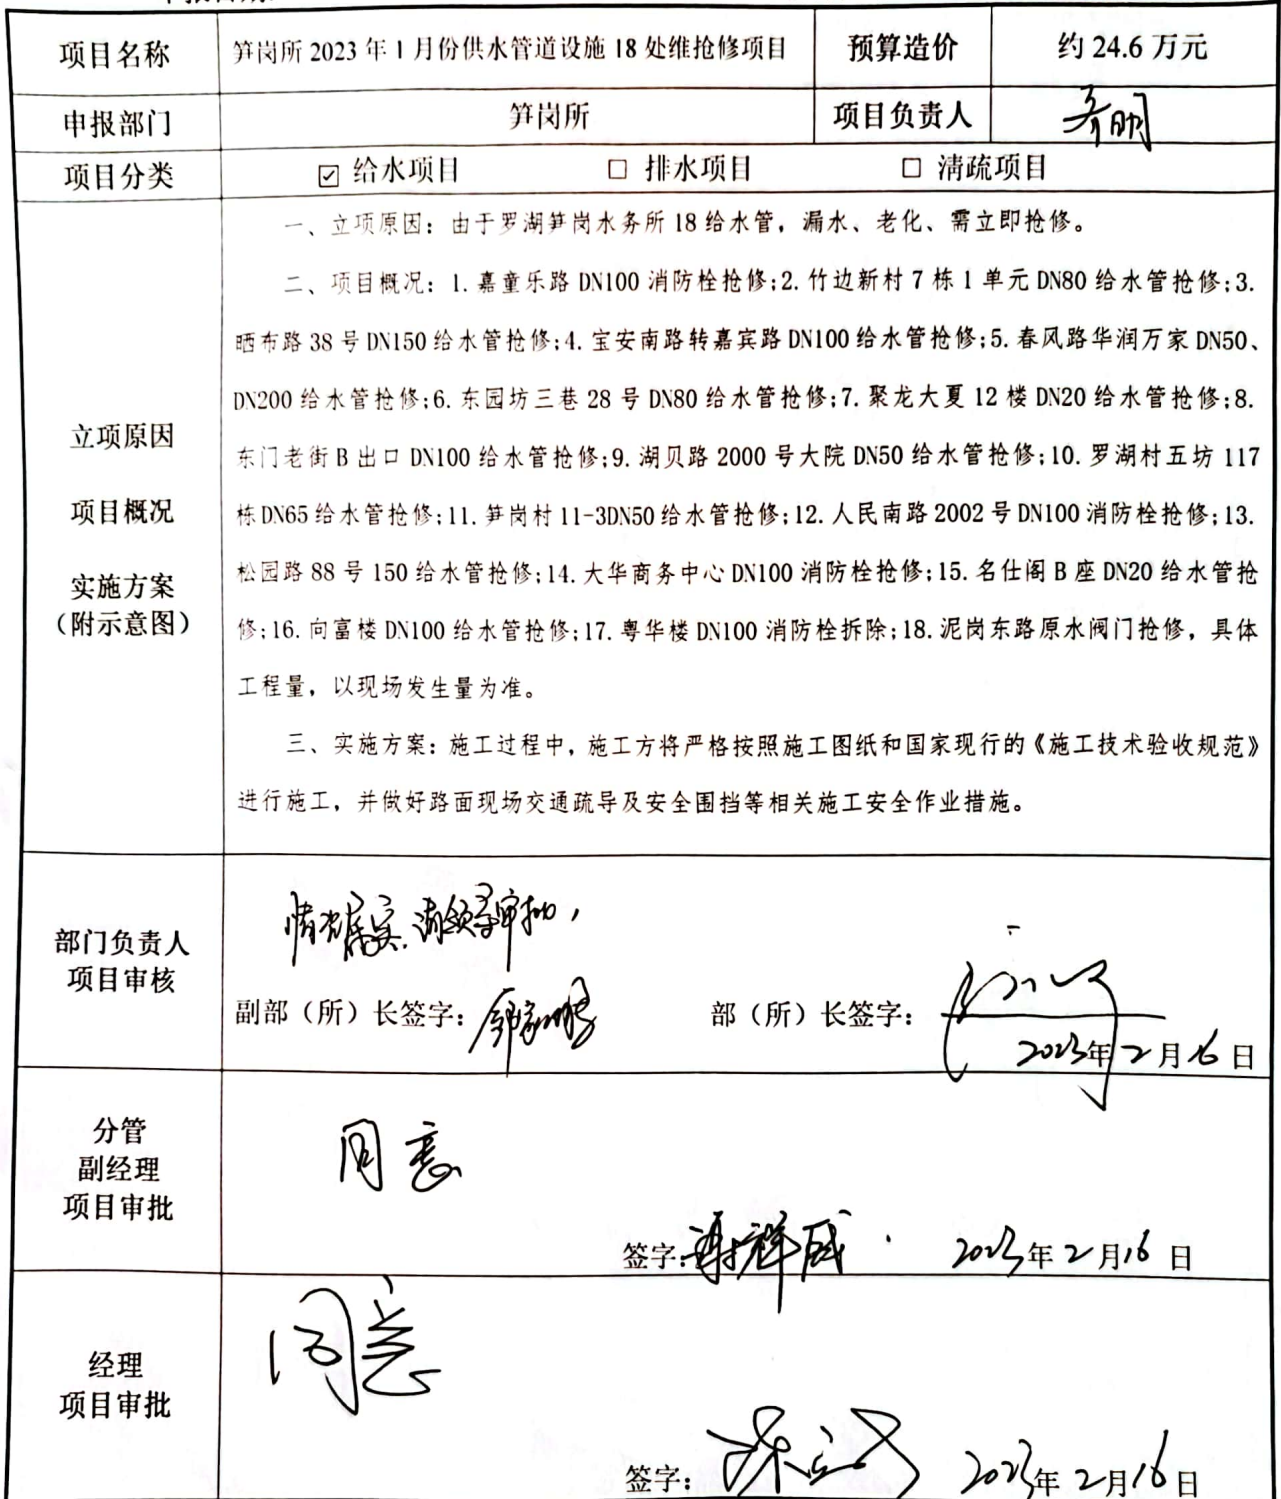 项目名称 笋岗所 2023 年 1 月份供水管道设施 18 处维抢修项目 预算造价 约 24.6 万元
申报部门 笋岗所 项目负责人
项目分类 ☑ 给水项目 □ 排水项目 □ 清疏项目
一、立项原因：由于罗湖笋岗水务所 18 给水管，漏水、老化、需立即抢修。
二、项目概况：1.嘉童乐路 DN100 消防栓抢修;2.竹边新村 7 栋 1 单元 DN80 给水管抢修;3.
晒布路 38 号 DN150 给水管抢修;4.宝安南路转嘉宾路 DN100 给水管抢修;5.春风路华润万家 DN50、
DN200 给水管抢修;6.东园坊三巷 28 号 DN80 给水管抢修;7.聚龙大夏 12 楼 DN20 给水管抢修;8.
东门老街 B 出口 DN100 给水管抢修;9.湖贝路 2000 号大院 DN50 给水管抢修;10.罗湖村五坊 117
栋 DN65 给水管抢修;11.笋岗村 11-3DN50 给水管抢修;12.人民南路 2002 号 DN100 消防栓抢修;13.
松园路 88 号 150 给水管抢修;14.大华商务中心 DN100 消防栓抢修;15.名仕阁 B 座 DN20 给水管抢
修;16.向富楼 DN100 给水管抢修;17.粤华楼 DN100 消防栓拆除;18.泥岗东路原水阀门抢修，具体
工程量，以现场发生量为准。
三、实施方案：施工过程中，施工方将严格按照施工图纸和国家现行的《施工技术验收规范》
进行施工，并做好路面现场交通疏导及安全围挡等相关施工安全作业措施。
立项原因
项目概况
实施方案
（附示意图）
部门负责人
项目审核
情况属实，请领导审批，
副部（所）长签字： 部（所）长签字：
2023年 2 月 16 日
分管
副经理
项目审批
同意
签字：谢祥成 2023年 2 月 16 日
经理
项目审批
同意
签字： 2023年 2 月 16 日